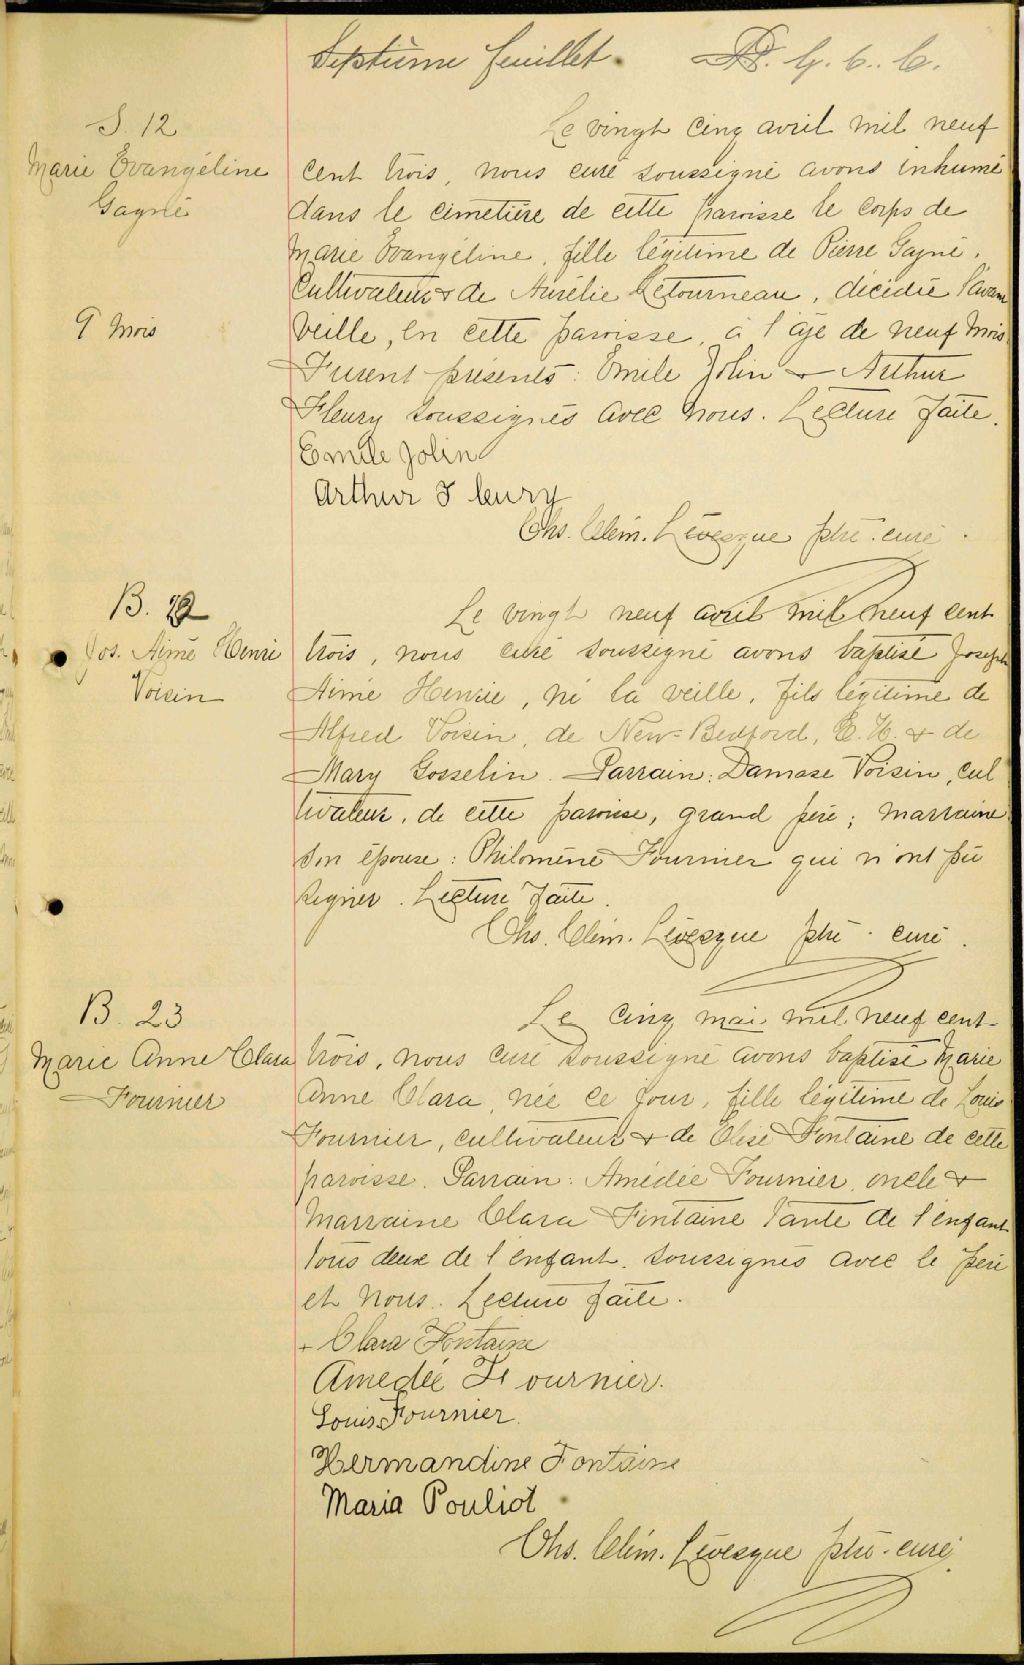 Septième feuillet. G. C. C.
S. 12
Marie Evangéline
Gagné
9 Mois
Le vingt cinq avril mil neuf
cent trois, nous curé soussigné avons inhumé
dans le cimetière de cette paroisse le corps de
Marie Evangéline, fille légitime de Pierre Gagné,
Cultivateur & de Aurélie Létourneau, décédée l'avant
veille, en cette paroisse, à l'âge de neuf mois.
Furent présents: Emile Jolin & Arthur
Fleury soussignés avec nous. Lecture faite.
Emile Jolin
Arthur Fleury
Chs. Clém. Lévesque ptre. curé.
B. 22
Jos. Aimé Henri
Voisin
Le vingt neuf avril mil neuf cent
trois, nous curé soussigné avons baptisé Joseph
Aimé Henrie, né la veille, fils légitime de
Alfred Voisin, de New-Bedford, E. U. & de
Mary Gosselin. Parrain: Damase Voisin, cul
tivateur, de cette paroisse, grand père; marraine
son épouse: Philomène Fournier qui n'ont pu
signer. Lecture faite.
Chs. Clém. Lévesque ptre. curé.
B. 23
Marie Anne Clara
Fournier
Le cinq mai mil neuf cent-
trois, nous curé soussigné avons baptisé Marie
Anne Clara, née ce jour, fille légitime de Louis
Fournier, cultivateur & de Elise Fontaine de cette
paroisse. Parrain: Amédée Fournier, oncle &
Marraine Clara Fontaine tante de l'enfant
tous deux de l'enfant. soussignés avec le père
et nous. Lecture faite.
+ Clara Fontaine
Amedée Fournier.
Louis Fournier.
Hermandine Fontaine
Maria Pouliot
Chs. Clém. Lévesque ptre-curé.